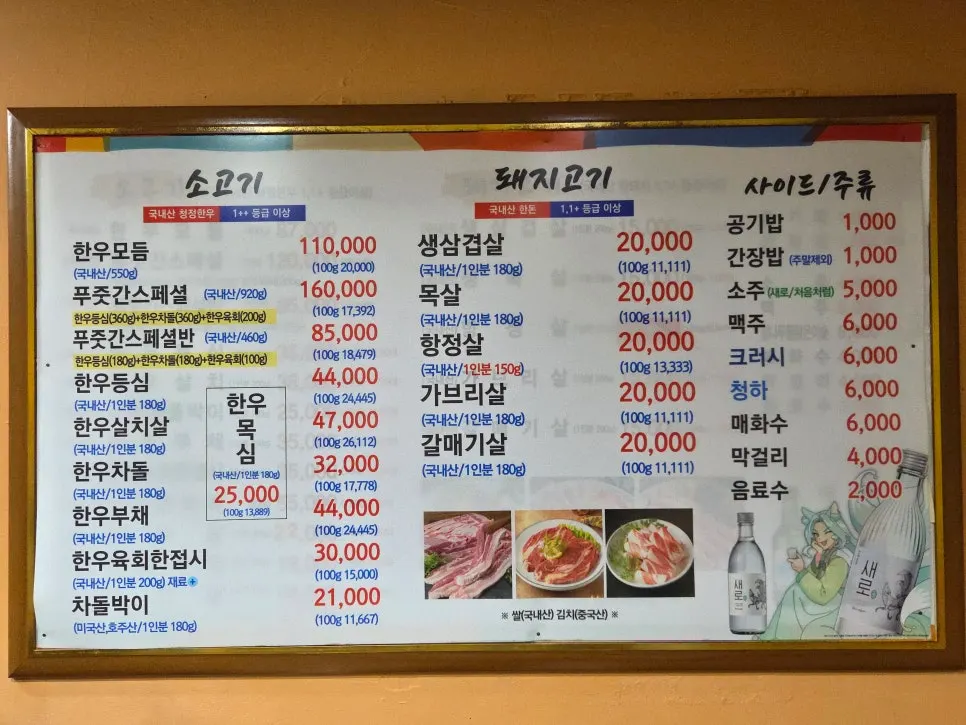 소고기
국내산 청정한우 1++ 등급 이상
한우모듬 110,000
(국내산/550g) (100g 20,000)
푸줏간스페셜 (국내산/920g) 160,000
(100g 17,392)
한우등심(360g)+한우차돌(360g)+한우육회(200g)
푸줏간스페셜반 (국내산/460g) 85,000
(100g 18,479)
한우등심(180g)+한우차돌(180g)+한우육회(100g)
한우등심 44,000
(국내산/1인분 180g) (100g 24,445)
한우살치살 47,000
(국내산/1인분 180g) (100g 26,112)
한우차돌 32,000
(국내산/1인분 180g) (100g 17,778)
한우부채 44,000
(국내산/1인분 180g) (100g 24,445)
한우육회한접시 30,000
(국내산/1인분 200g) 재료+ (100g 15,000)
차돌박이 21,000
(미국산,호주산/1인분 180g) (100g 11,667)
한우
목
심
(국내산/1인분 180g)
25,000
(100g 13,889)
돼지고기
국내산 한돈 1,1+ 등급 이상
생삼겹살 20,000
(국내산/1인분 180g) (100g 11,111)
목살 20,000
(국내산/1인분 180g) (100g 11,111)
항정살 20,000
(국내산/1인분 150g) (100g 13,333)
가브리살 20,000
(국내산/1인분 180g) (100g 11,111)
갈매기살 20,000
(국내산/1인분 180g) (100g 11,111)
※ 쌀(국내산) 김치(중국산) ※
사이드/주류
공기밥 1,000
간장밥 (주말제외) 1,000
소주 (새로/처음처럼) 5,000
맥주 6,000
크러시 6,000
청하 6,000
매화수 6,000
막걸리 4,000
음료수 2,000
새로
새로